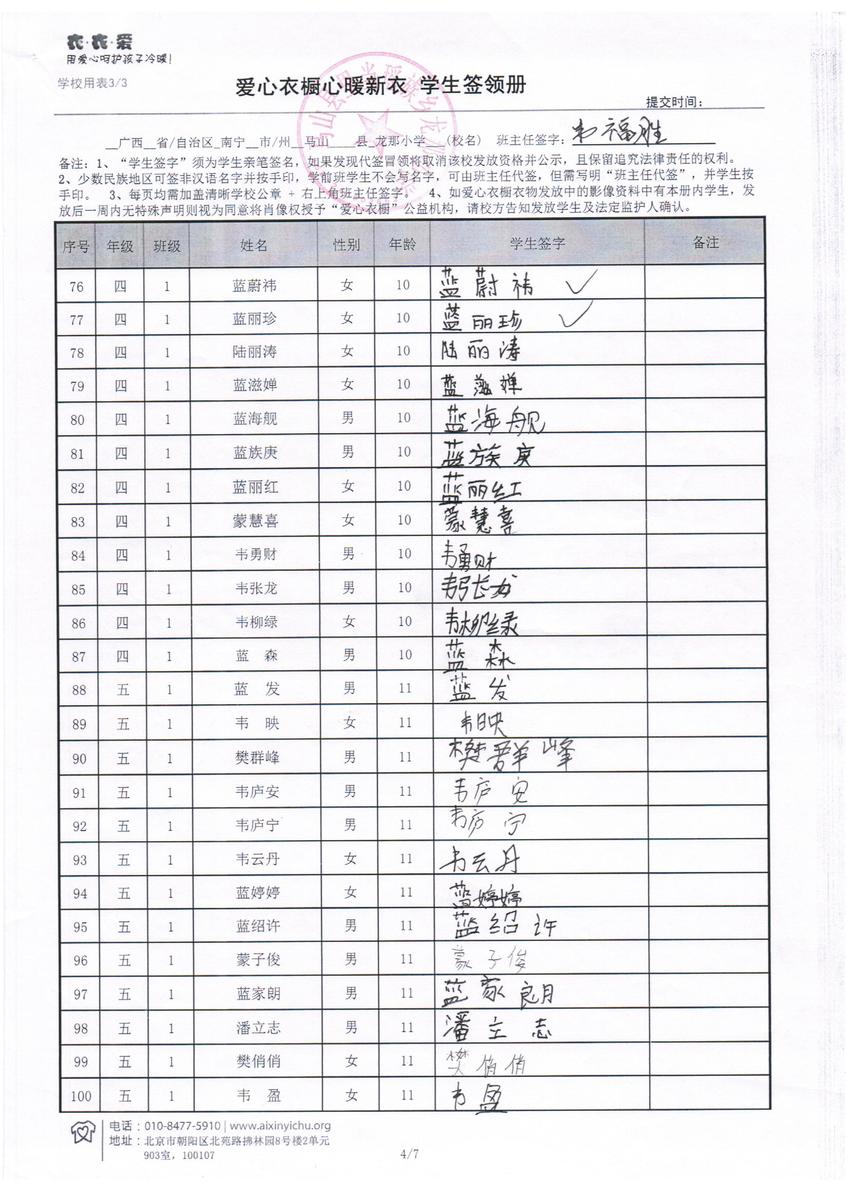 衣·衣·爱
用爱心呵护孩子冷暖!
学校用表3/3
爱心衣橱心暖新衣 学生签领册
提交时间:
__广西__省/自治区_南宁__市/州__马山____县_龙那小学___(校名) 班主任签字: 韦福胜
备注:1、“学生签字”须为学生亲笔签名,如果发现代签冒领将取消该校发放资格并公示,且保留追究法律责任的权利。
2、少数民族地区可签非汉语名字并按手印,学前班学生不会写名字,可由班主任代签,但需写明“班主任代签”,并学生按
手印。 3、每页均需加盖清晰学校公章 + 右上角班主任签字。 4、如爱心衣橱衣物发放中的影像资料中有本册内学生,发
放后一周内无特殊声明则视为同意将肖像权授予“爱心衣橱”公益机构,请校方告知发放学生及法定监护人确认。
序号 年级 班级 姓名 性别 年龄 学生签字 备注
76 四 1 蓝蔚祎 女 10 蓝蔚祎 ✓
77 四 1 蓝丽珍 女 10 蓝丽珍 ✓
78 四 1 陆丽涛 女 10 陆丽涛
79 四 1 蓝滋婵 女 10 蓝滋婵
80 四 1 蓝海舰 男 10 蓝海舰
81 四 1 蓝族庚 男 10 蓝族庚
82 四 1 蓝丽红 女 10 蓝丽红
83 四 1 蒙慧喜 女 10 蒙慧喜
84 四 1 韦勇财 男 10 韦勇财
85 四 1 韦张龙 男 10 韦张龙
86 四 1 韦柳绿 女 10 韦柳绿
87 四 1 蓝 森 男 10 蓝 森
88 五 1 蓝 发 男 11 蓝 发
89 五 1 韦 映 女 11 韦映
90 五 1 樊群峰 男 11 樊群峰
91 五 1 韦庐安 男 11 韦庐安
92 五 1 韦庐宁 男 11 韦庐宁
93 五 1 韦云丹 女 11 韦云丹
94 五 1 蓝婷婷 女 11 蓝婷婷
95 五 1 蓝绍许 男 11 蓝绍许
96 五 1 蒙子俊 男 11 蒙子俊
97 五 1 蓝家朗 男 11 蓝家朗
98 五 1 潘立志 男 11 潘立志
99 五 1 樊俏俏 女 11 樊俏俏
100 五 1 韦 盈 女 11 韦盈
电话:010-8477-5910 | www.aixinyichu.org
地址:北京市朝阳区北苑路拂林园8号楼2单元
903室,100107
4/7